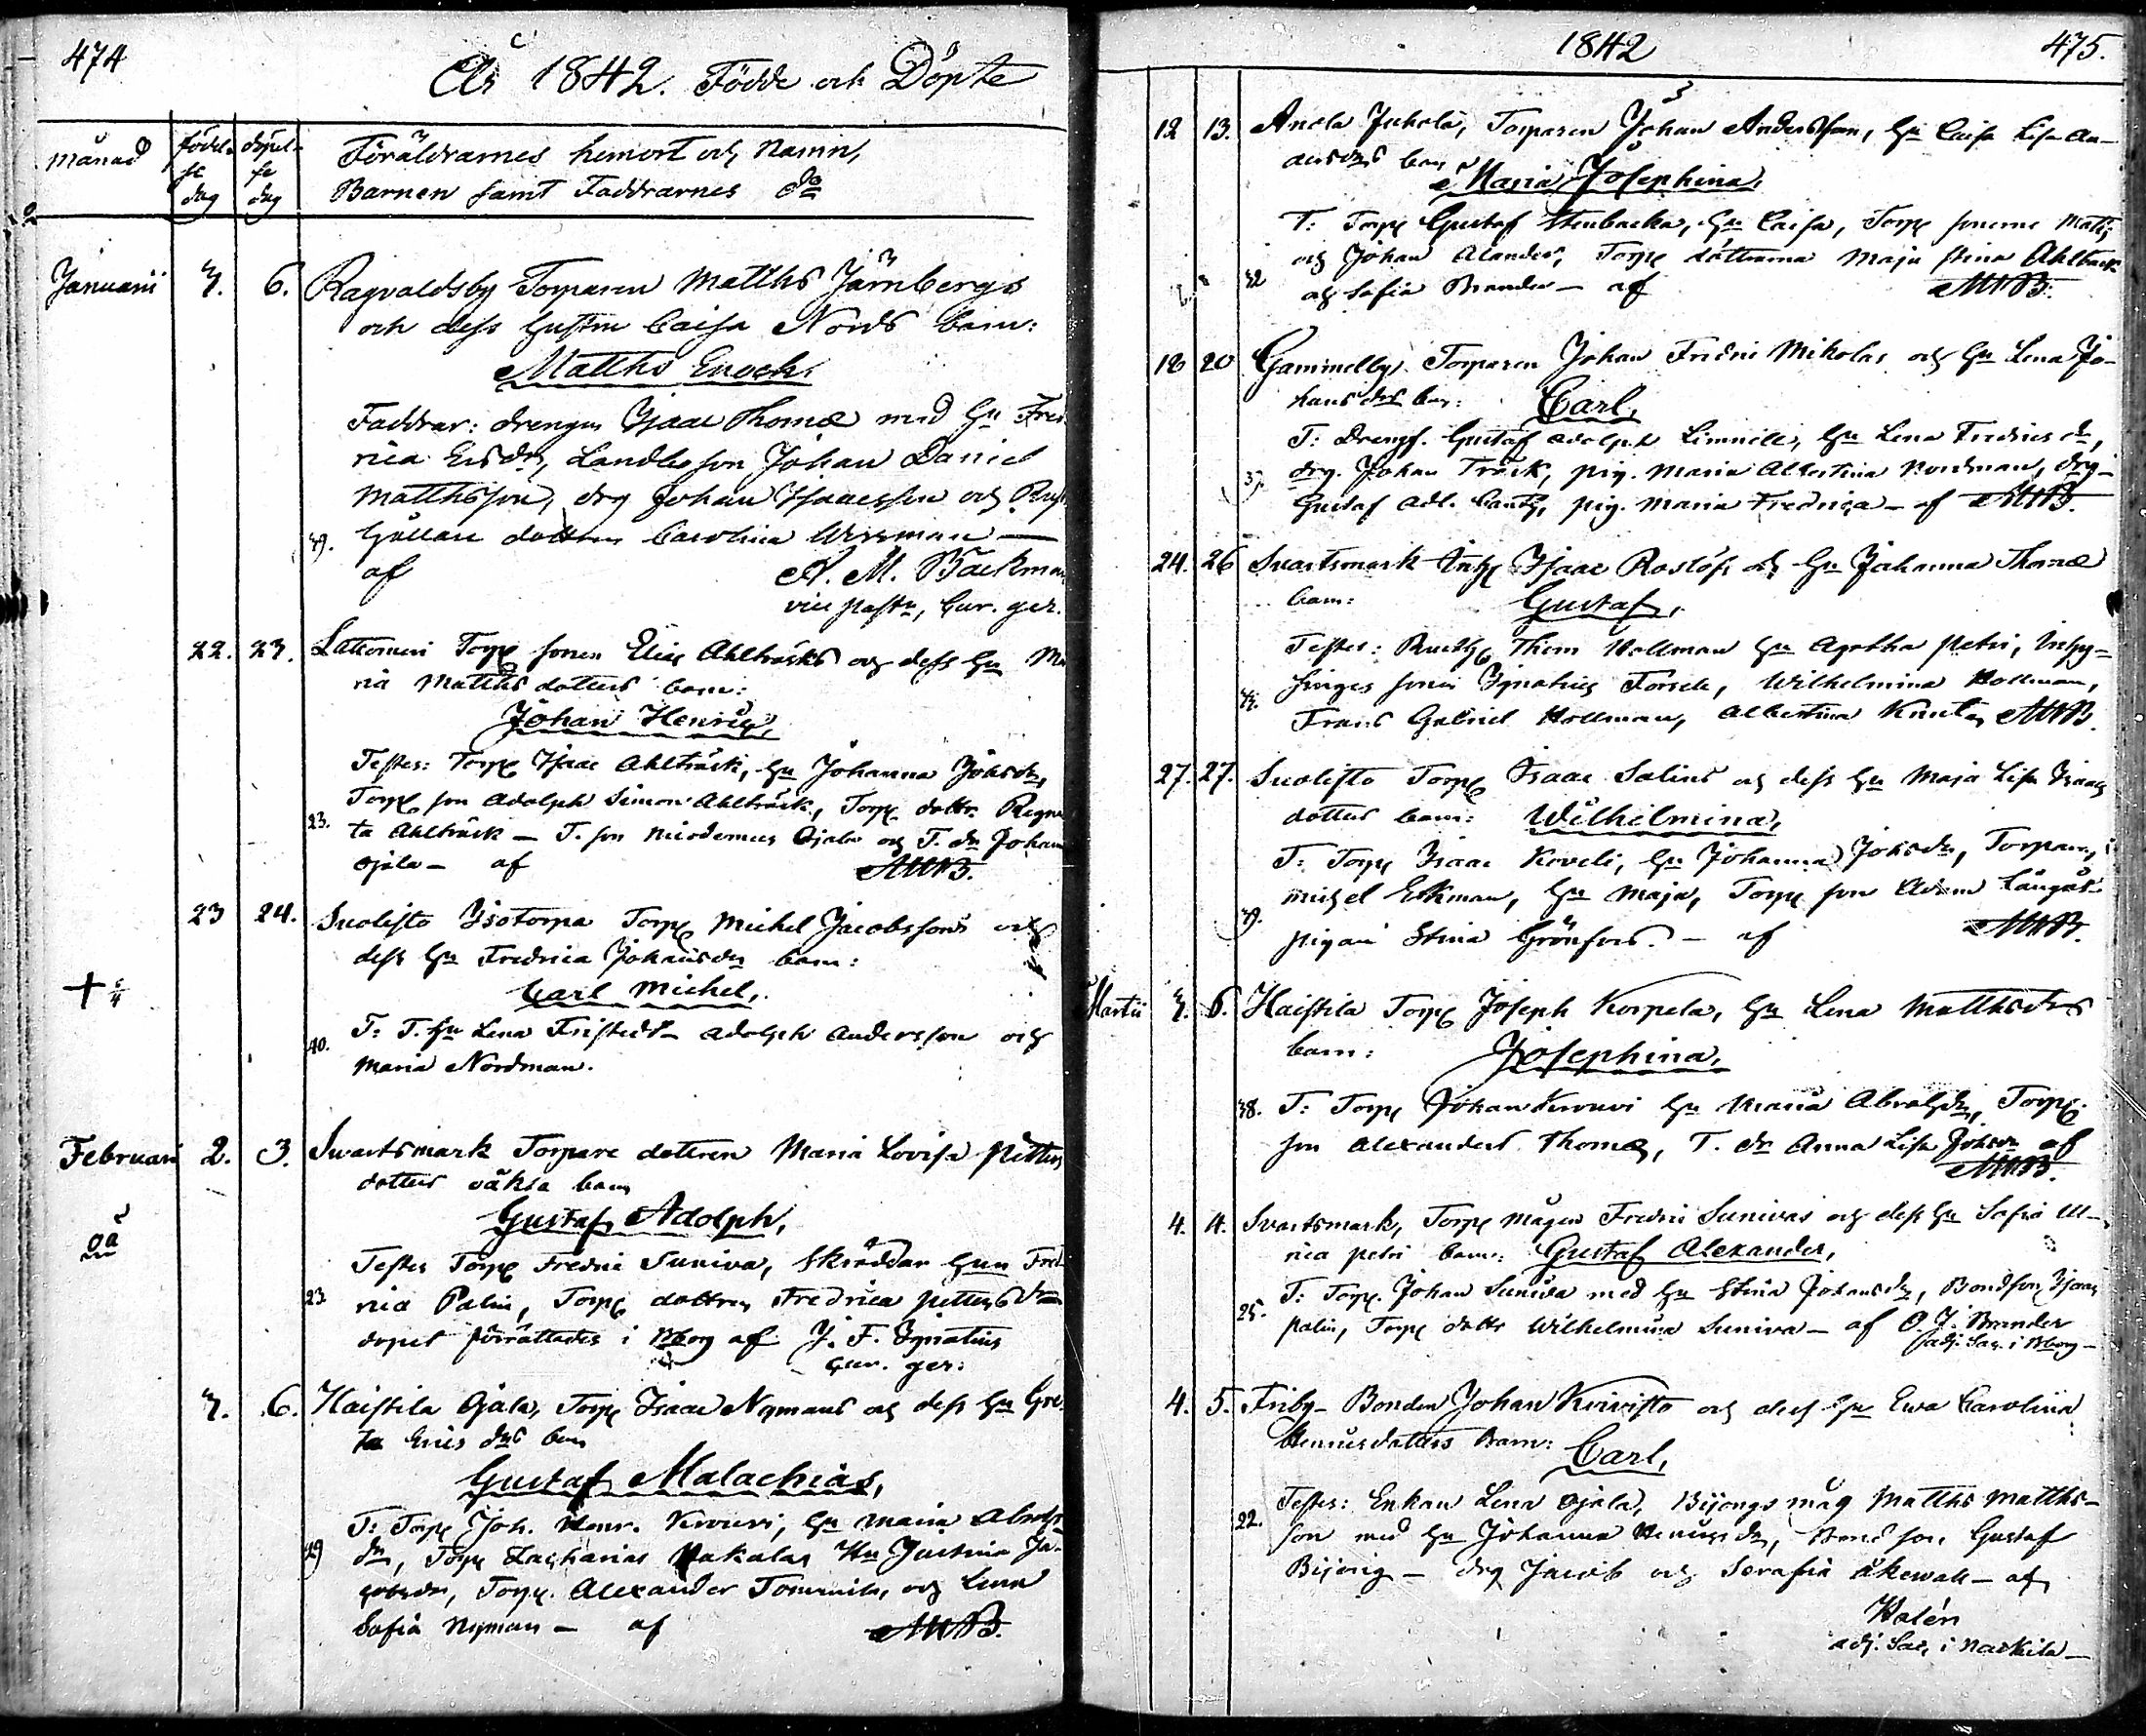 474
År 1842. Födde och Döpte
Månad
Födel-
se
dag
döpel-
se
dag
Föräldrarnes hemort och Namn,
Barnen samt Faddrarnes do
Januarii 3. 6. Ragvaldsby Torparen Matths Järnbergs
och dess hustru Caisa Nords barn:
Matths Enoch.
Faddrar: drengen Isaac Thomæ med hu Fred
rica Ersdr, Landbo son Johan Daniel
Matthsson, drg Johan Isaacsson och
39. hållare dottren Carolina Wessman —
af A. M. Backman
vice past., Cur. ger.
22. 23. Lattomeri Torp sonen Elias Ahlträsks och dess hu Ma
ria Matths dotters barn:
Johan Henric,
Testes: Torp Isaac Ahlträsk, hu Johanna Johsdr,
Torp son Adolph Simon Ahlträsk, Torp dottr Regina
23. ta Ahlträsk — T. son Nicodemus Ojala och T. dr Johan
Ojala — af AMB.
23 24. Suolisto Isotorpa Torp Michel Jacobssons och
dess hu Fredrica Johansdrs barn:
Carl Michel,
+
40. T: T. hu Lena Fristedt — Adolph Andersson och
Maria Nordman.
Februari 2. 3. Svartsmark Torpare dottren Maria Lovisa Petters
dotters oäkta barn
oä
Gustaf Adolph,
Testes Torp Fredric Suniva, Skräddar hun Fred
23. rica Palin, Torp dottren Fredrica Pettersdr
dopet förrättades i Nborg af J. F. Ignatius
Cur. ger:
3. 6. Haistila Ojala, Torp Isaac Nymans och dess hu Gre
ta Erics drs barn
Gustaf Malachias,
T: Torp Joh. Henr. Kerouvi, hu Maria Abrahs
39 dr, Torp Zacharias Hu Justina Ja-
cobsdr, Torp. Alexander Tommila, och Lena
Sofia Nyman — af AMB.
1842
475.
12 13. Anola Juhola, Torparen Johan Andersson, hu Caisa Lisa An-
dersdrs barn
Maria Josephina,
T: Torp Gustaf Stenbacka, hu Caisa, Torp sonerne Matts
och Johan Alander, Torp döttrarna Maja Stina Ahlback
32 och Sofia Brander — af AMB.
18 20 Gammelby. Torparen Johan Fredric Mikolas och hu Lena Jo-
hans drs barn: Carl,
T: Drengs. Gustaf Adolph Limnell, hu Lena Fredrics dr,
37. drg. Johan Träsk, pig. Maria Albertina Nordman, drg
Gustaf Adl. pig. Maria Fredrica — af AMB.
24. 26 Svartsmark Isaac Roslöfs och hu Johanna Thomæ
barn: Gustaf,
Testes: Thom Hollman hu Agatha Petri,
sonen Ignatius Forsell, Wilhelmina Hollman,
Frans Gabriel Hollman, Albertina AMB.
27. 27. Suolisto Torp Isaac Salins och dess hu Maja Lisa Isaacs
dotters barn: Wilhelmina,
T: Torp Isaac Koveli, hu Johanna Johsdr, Torparen
Michel Ekman, hu Maja, Torp son Adam
39. pigan Stina Grönfors. — af AMB.
Martii 3. 6. Haistila Torp Joseph Korpela, hu Lena Matthsdrs
barn: Josephina,
38. T: Torp Johan Kerouvi hu Maria Abrahsdr, Torp.
son Alexander Thomæ, T. dr Anna Lisa Johsdr af
AMB.
4. 4. Svartsmark, Torp mågen Fredric Sunivas och dess hu Sofia Ul-
rica Petri barn: Gustaf Alexander,
T: Torp. Johan Suniva med hu Stina Johansdr, Bondson Isaac
25. Palin, Torp dottr Wilhelmina Suniva — af O. J. Brander
adj. Sac. i Nborg —
4. 5. Friby — Bonden Johan Kivisto och dess hu Ewa Carolina
Henricsdotters Barn: Carl,
Testes: Enkan Lena Ojala, Bijongs måg Matths Matths-
22. son med hu Johanna Henricsdr, Bond son Gustaf
Bijong — drg Jacob och Serafia Åkewall — af
Halén
adj. Sac. i Nackila —